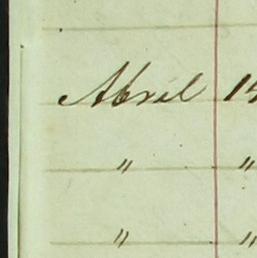 April 14
" "
" "